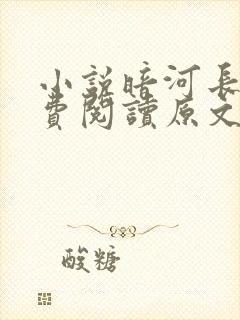 小説暗河長
費閱讀原文
酸糖